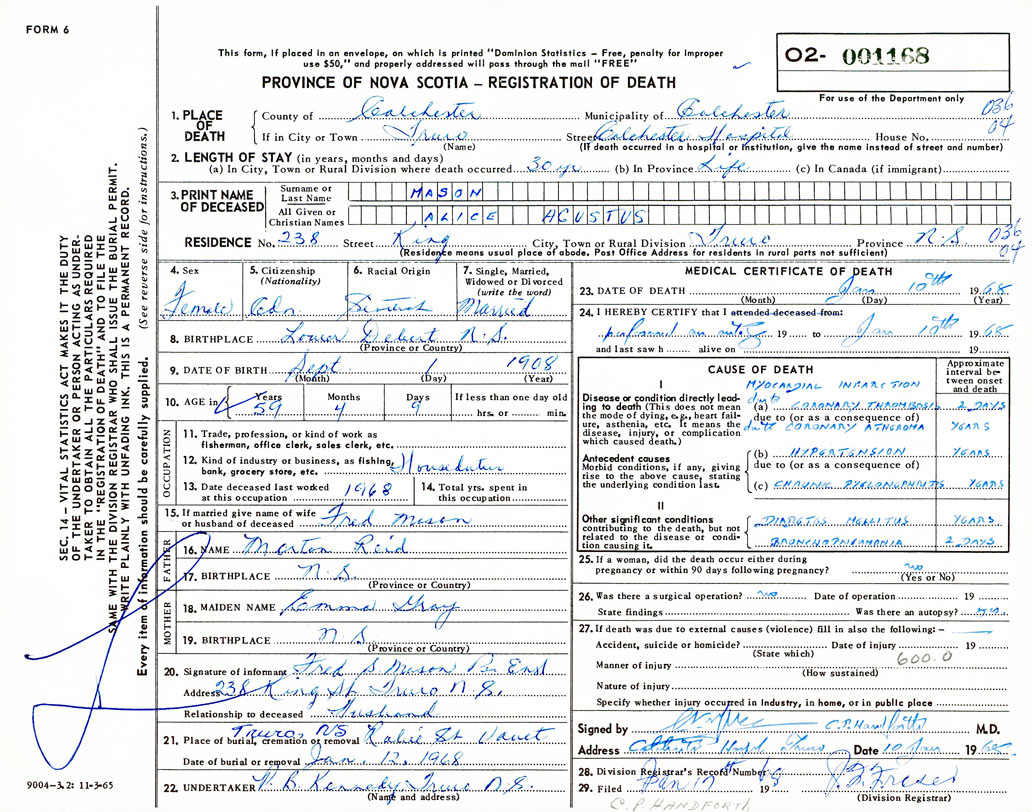 FORM 6
This form, if placed in an envelope, on which is printed "Dominion Statistics – Free, penalty for improper
use $50," and properly addressed will pass through the mail "FREE"
O2- 001168
PROVINCE OF NOVA SCOTIA – REGISTRATION OF DEATH
For use of the Department only
1. PLACE OF DEATH
County of Colchester Municipality of Colchester 036
If in City or Town Truro Street Colchester Hospital House No. 04
(Name) (If death occurred in a hospital or institution, give the name instead of street and number)
2. LENGTH OF STAY (in years, months and days)
(a) In City, Town or Rural Division where death occurred 30 yr (b) In Province Life (c) In Canada (if immigrant)
3. PRINT NAME OF DECEASED
Surname or Last Name MASON
All Given or Christian Names ALICE AGUSTUS
RESIDENCE No. 238 Street King City, Town or Rural Division Truro Province N.S. 036
(Residence means usual place of abode. Post Office Address for residents in rural parts not sufficient) 04
4. Sex
Female
5. Citizenship
(Nationality)
Cdn
6. Racial Origin
7. Single, Married,
Widowed or Divorced
(write the word)
Married
8. BIRTHPLACE Lower Debert N.S.
(Province or Country)
9. DATE OF BIRTH Sept 1 1908
(Month) (Day) (Year)
10. AGE in Years Months Days If less than one day old
59 4 9 hrs. or min.
OCCUPATION
11. Trade, profession, or kind of work as
fisherman, office clerk, sales clerk, etc.
12. Kind of industry or business, as fishing,
bank, grocery store, etc.
13. Date deceased last worked
at this occupation 1968
14. Total yrs. spent in
this occupation
15. If married give name of wife
or husband of deceased Fred Mason
FATHER
16. NAME Morton Reid
17. BIRTHPLACE N.S.
(Province or Country)
MOTHER
18. MAIDEN NAME Emma Gray
19. BIRTHPLACE N.S.
(Province or Country)
20. Signature of informant Fred S Mason Per
Address 238 King St Truro N.S.
Relationship to deceased Husband
Truro NS
21. Place of burial, cremation or removal
Date of burial or removal Jan. 12, 1968
22. UNDERTAKER B Kennedy Truro N.S.
(Name and address)
MEDICAL CERTIFICATE OF DEATH
23. DATE OF DEATH Jan 10th 1968
(Month) (Day) (Year)
24. I HEREBY CERTIFY that I attended deceased from:
performed an 19 to Jan 10th 1968
and last saw h alive on 19
CAUSE OF DEATH
Approximate
interval be-
tween onset
and death
I
Disease or condition directly lead-
ing to death (This does not mean
the mode of dying, e.g., heart fail-
ure, asthenia, etc. It means the
disease, injury, or complication
which caused death.)
MYOCARDIAL INFARCTION
due to
(a) CORONARY THROMBOSIS 2 DAYS
due to (or as a consequence of)
due to CORONARY ATHEROMA YEARS
Antecedent causes
Morbid conditions, if any, giving
rise to the above cause, stating
the underlying condition last.
(b) HYPERTENSION YEARS
due to (or as a consequence of)
(c) CHRONIC PYELONEPHRITIS YEARS
II
Other significant conditions
contributing to the death, but not
related to the disease or condi-
tion causing it.
DIABETES MELLITUS YEARS
BRONCHOPNEUMONIA 2 DAYS
25. If a woman, did the death occur either during
pregnancy or within 90 days following pregnancy? no
(Yes or No)
26. Was there a surgical operation? no Date of operation 19
State findings Was there an autopsy? yes
27. If death was due to external causes (violence) fill in also the following: –
Accident, suicide or homicide? Date of injury 19
(State which) 600.0
Manner of injury
(How sustained)
Nature of injury
Specify whether injury occurred in Industry, in home, or in public place
Signed by C.P. Handforth M.D.
Address Date 10 Jan 1968
28. Division Registrar's Record Number
29. Filed Jan 17 1968
(Division Registrar)
C.P. HANDFORTH
SEC. 14 – VITAL STATISTICS ACT MAKES IT THE DUTY
OF THE UNDERTAKER OR PERSON ACTING AS UNDER-
TAKER TO OBTAIN ALL THE PARTICULARS REQUIRED
IN THE "REGISTRATION OF DEATH" AND TO FILE THE
SAME WITH THE DIVISION REGISTRAR WHO SHALL ISSUE THE BURIAL PERMIT.
WRITE PLAINLY WITH UNFADING INK. THIS IS A PERMANENT RECORD.
Every item of information should be carefully supplied. (See reverse side for instructions.)
9004-3.2: 11-3-65